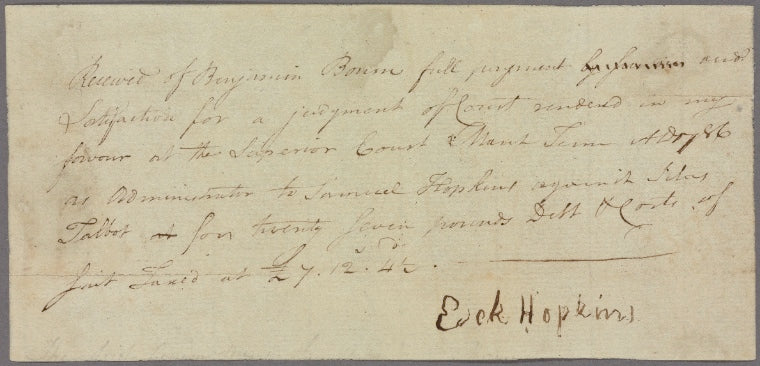 Received of Benjamin Bourn full payment and
Satisfaction for a judgment of Court rendered in my
favour at the Superior Court March Term AD 1786
as Administrator to Samuel Hopkins against Silas
Talbot for twenty seven pounds Debt & Costs of
Suit Taxed at £7.12.4½.
Esek Hopkins